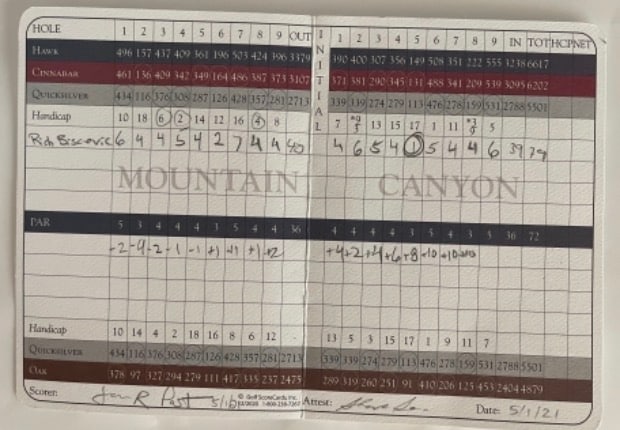 HOLE 1 2 3 4 5 6 7 8 9 OUT INITIAL 1 2 3 4 5 6 7 8 9 IN TOT HCP NET
HAWK 496 157 437 409 361 196 503 424 396 3379 390 400 307 356 149 508 351 222 555 3238 6617
CINNABAR 461 136 409 342 349 164 486 387 373 3107 371 381 290 345 131 488 341 209 539 3095 6202
QUICKSILVER 434 116 376 308 287 126 428 357 281 2713 339 339 274 279 113 476 278 159 531 2788 5501
Handicap 10 18 6 2 14 12 16 4 8 7 5 13 15 17 1 11 3 9
6 4 4 5 4 2 7 4 4 40 4 6 5 4 1 5 4 4 6 39 79
MOUNTAIN CANYON
PAR 5 3 4 4 4 3 5 4 4 36 4 4 4 4 3 5 4 3 5 36 72
-2 -1 -1 +1 +1 +1 +2 +4 +2 +4 +6 +8 +10 +10
Handicap 10 14 4 2 18 16 8 6 12 13 5 3 15 17 1 9 11 7
QUICKSILVER 434 116 376 308 287 126 428 357 281 2713 339 339 274 279 113 476 278 159 531 2788 5501
OAK 378 97 327 294 279 111 417 335 237 2475 289 319 260 251 91 410 206 125 453 2404 4879
Scorer: 5/1/21 © Golf ScoreCards, Inc. Attest: Date: 5/1/21